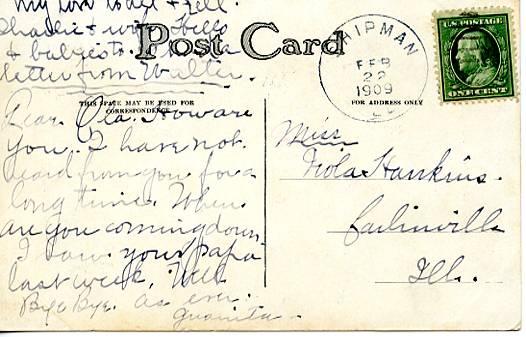 My love to all & tell
Charlie & wife Hello
& babys to. a
letter from Walter.
Post Card
THIS SPACE MAY BE USED FOR
CORRESPONDENCE
Dear Ola. How are
you. I have not
heard from you for a
long time. When
are you coming down.
I saw your papa
last week. Well
Bye Bye. as ever.
Juanita.
SHIPMAN
FEB
22
1909
ILL.
U.S. POSTAGE
ONE CENT
FOR ADDRESS ONLY
Miss
Viola Hankins.
Carlinville
Ill.